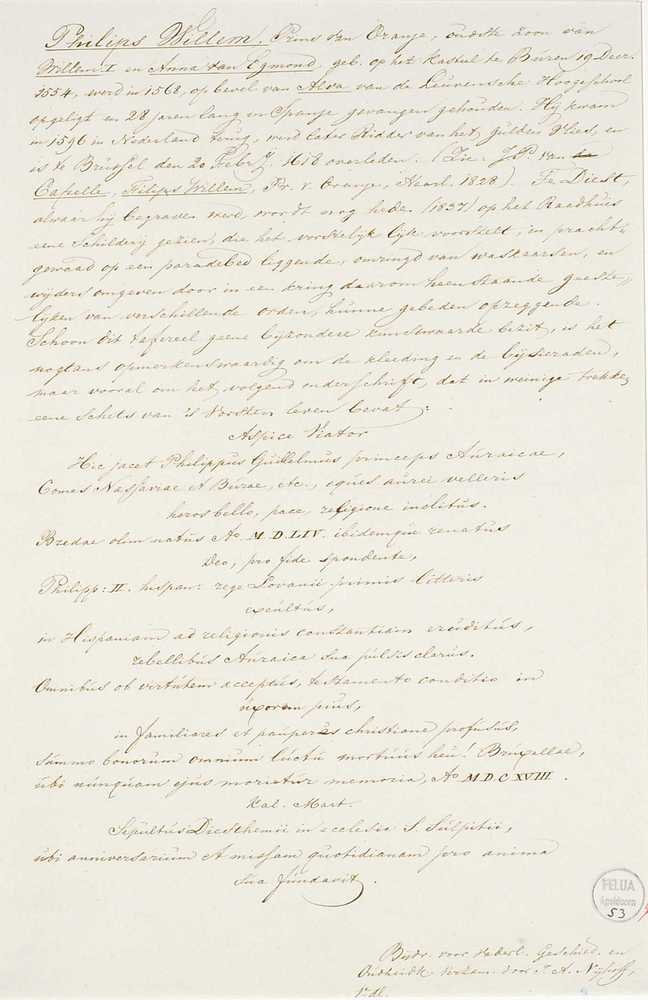 Philips Willem. Prins van Oranje, oudste zoon van
Willem I en Anna van Egmond, geb. op het kasteel te Buren 19 Decr.
1554, werd in 1568, op bevel van Alva van de Leuvensche Hoogeschool
opgeligt en 28 jaren lang in Spanje gevangen gehouden. Hij kwam
in 1596 in Nederland terug, werd later Ridder van het gulden Vlies, en
is te Brussel den 20 Febrij 1618 overleden. (Zie: J.P. van
Capelle, Filips Willem, Pr. v. Oranje, Haarl. 1828). Te Diest,
alwaar hij begraven werd, wordt nog heden (1837) op het Raadhuis
eene Schilderij gezien, die het vorstelijk lijk voorstelt, in pracht-
gewaad op een paradebed liggende, omringd van waskaarsen, en
wijders omgeven door in een kring daarom heen staande geeste-
lijken van verschillende orden, hunne gebeden opzeggende.
Schoon dit tafereel geene bijzondere kunstwaarde bezit, is het
nogtans opmerkenswaardig om de kleeding en de bijsieraden,
maar vooral om het volgend onderschrift, dat in weinige trekken
eene schets van 's Vorsten leven bevat:
Aspice Viator
Hic jacet Philippus Guillelmus princeps Auraicae,
Comes Nassaviae et Burae, etc., eques aurei velleris
heros bello, pace, religione inclitus.
Bredae olim natus Ao MDLIV. ibidemque renatus
Deo, pro fide spondente,
Philipp: II. hispan: rege Lovanii primis litteris
excultus,
in Hispaniam ad religionis constantiam eruditus,
rebellibus Auraica sua pulsis clarus.
Omnibus ob virtutem acceptus, testamento condito in
uxorem pius,
in familiares et pauperes christiane profusus,
summo bonorum omnium luctu mortuus heu! Bruxellae,
ubi nunquam ejus morietur memoria, Ao MDCXVIII.
Kal. Mart.
Sepultus Diesthemii in ecclesia S. Sulpitii,
ubi anniversarium et missam quotidianam pro anima
sua fundavit.
FELUA
Apeldoorn
53
Bijdr. voor vaderl. Geschied. en
Oudheidk. verzam. door I. A. Nijhoff,
1e dl.